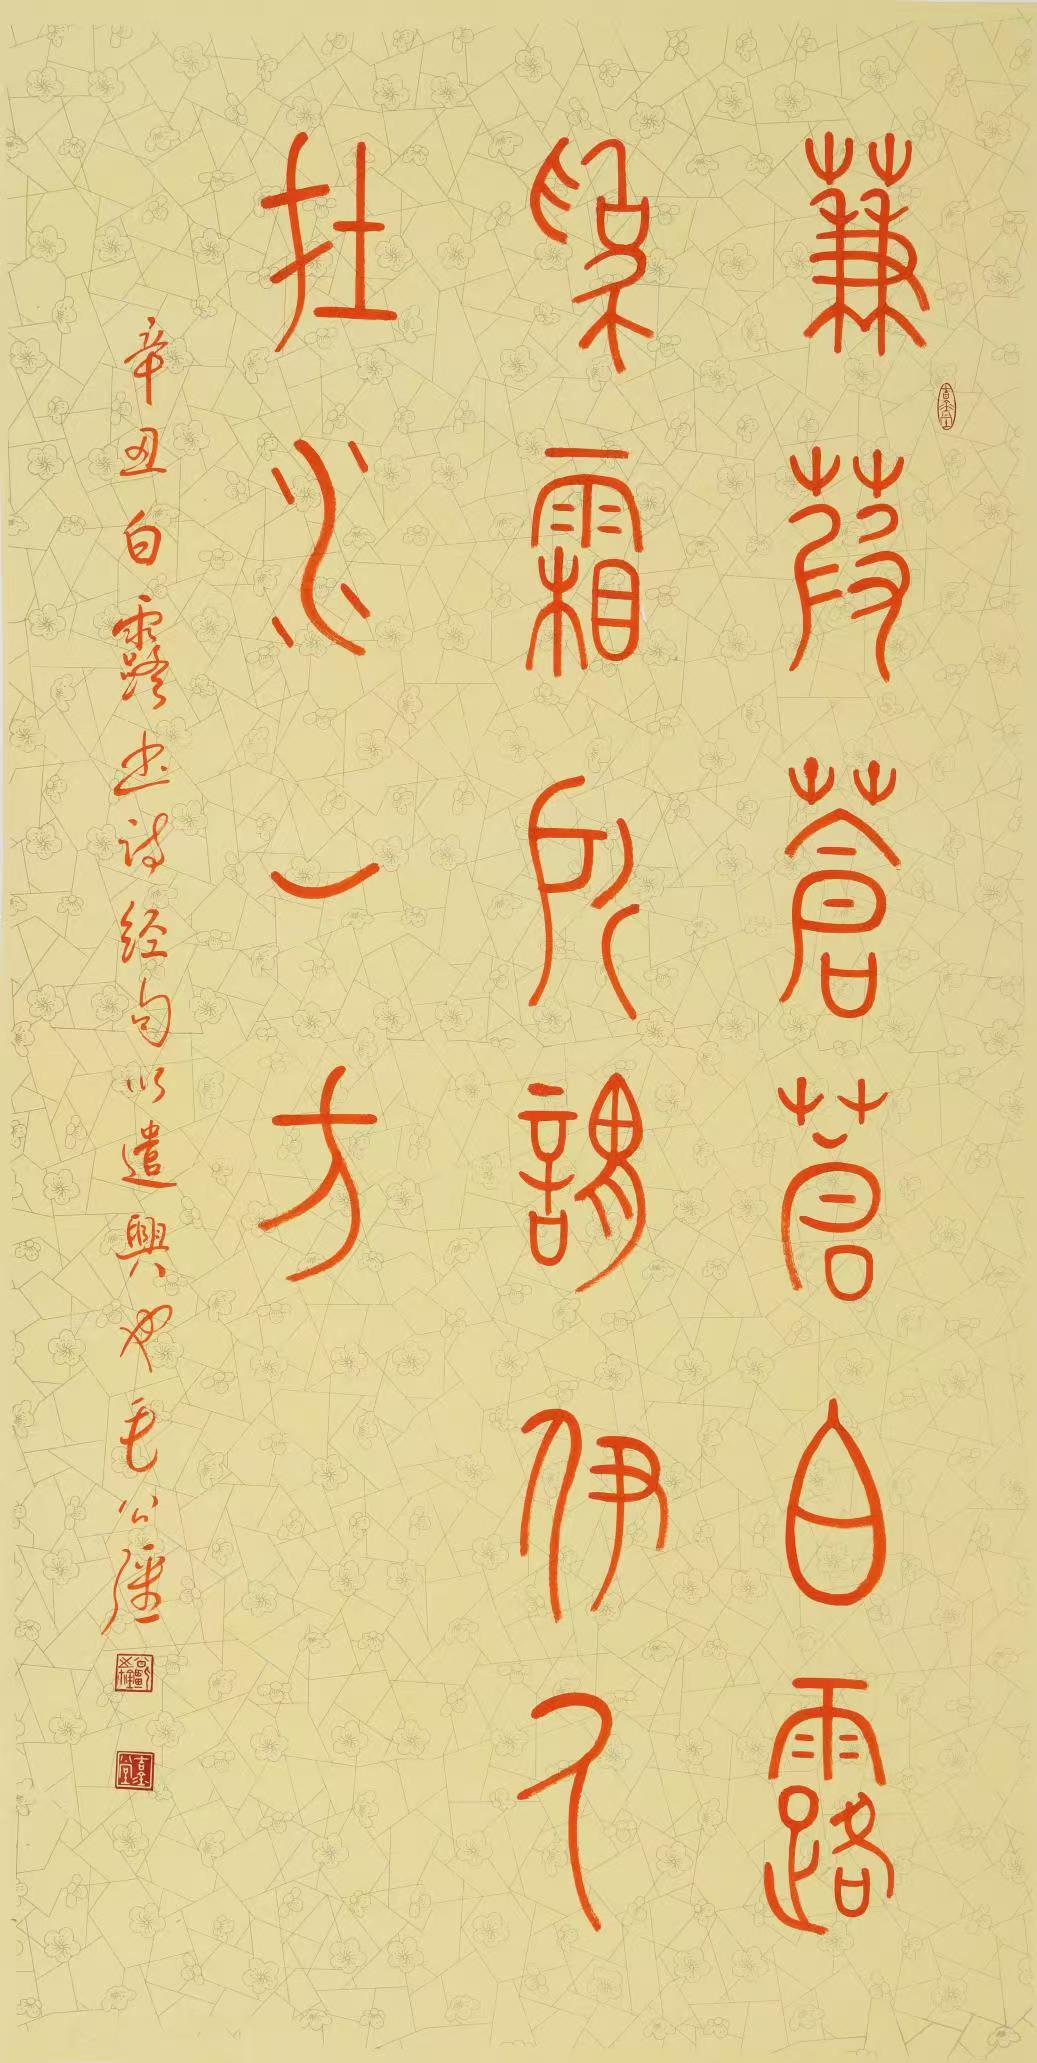 蒹葭蒼蒼白露
為霜所謂伊人
在水一方
辛丑白露書诗经句以遣興也毛公彊